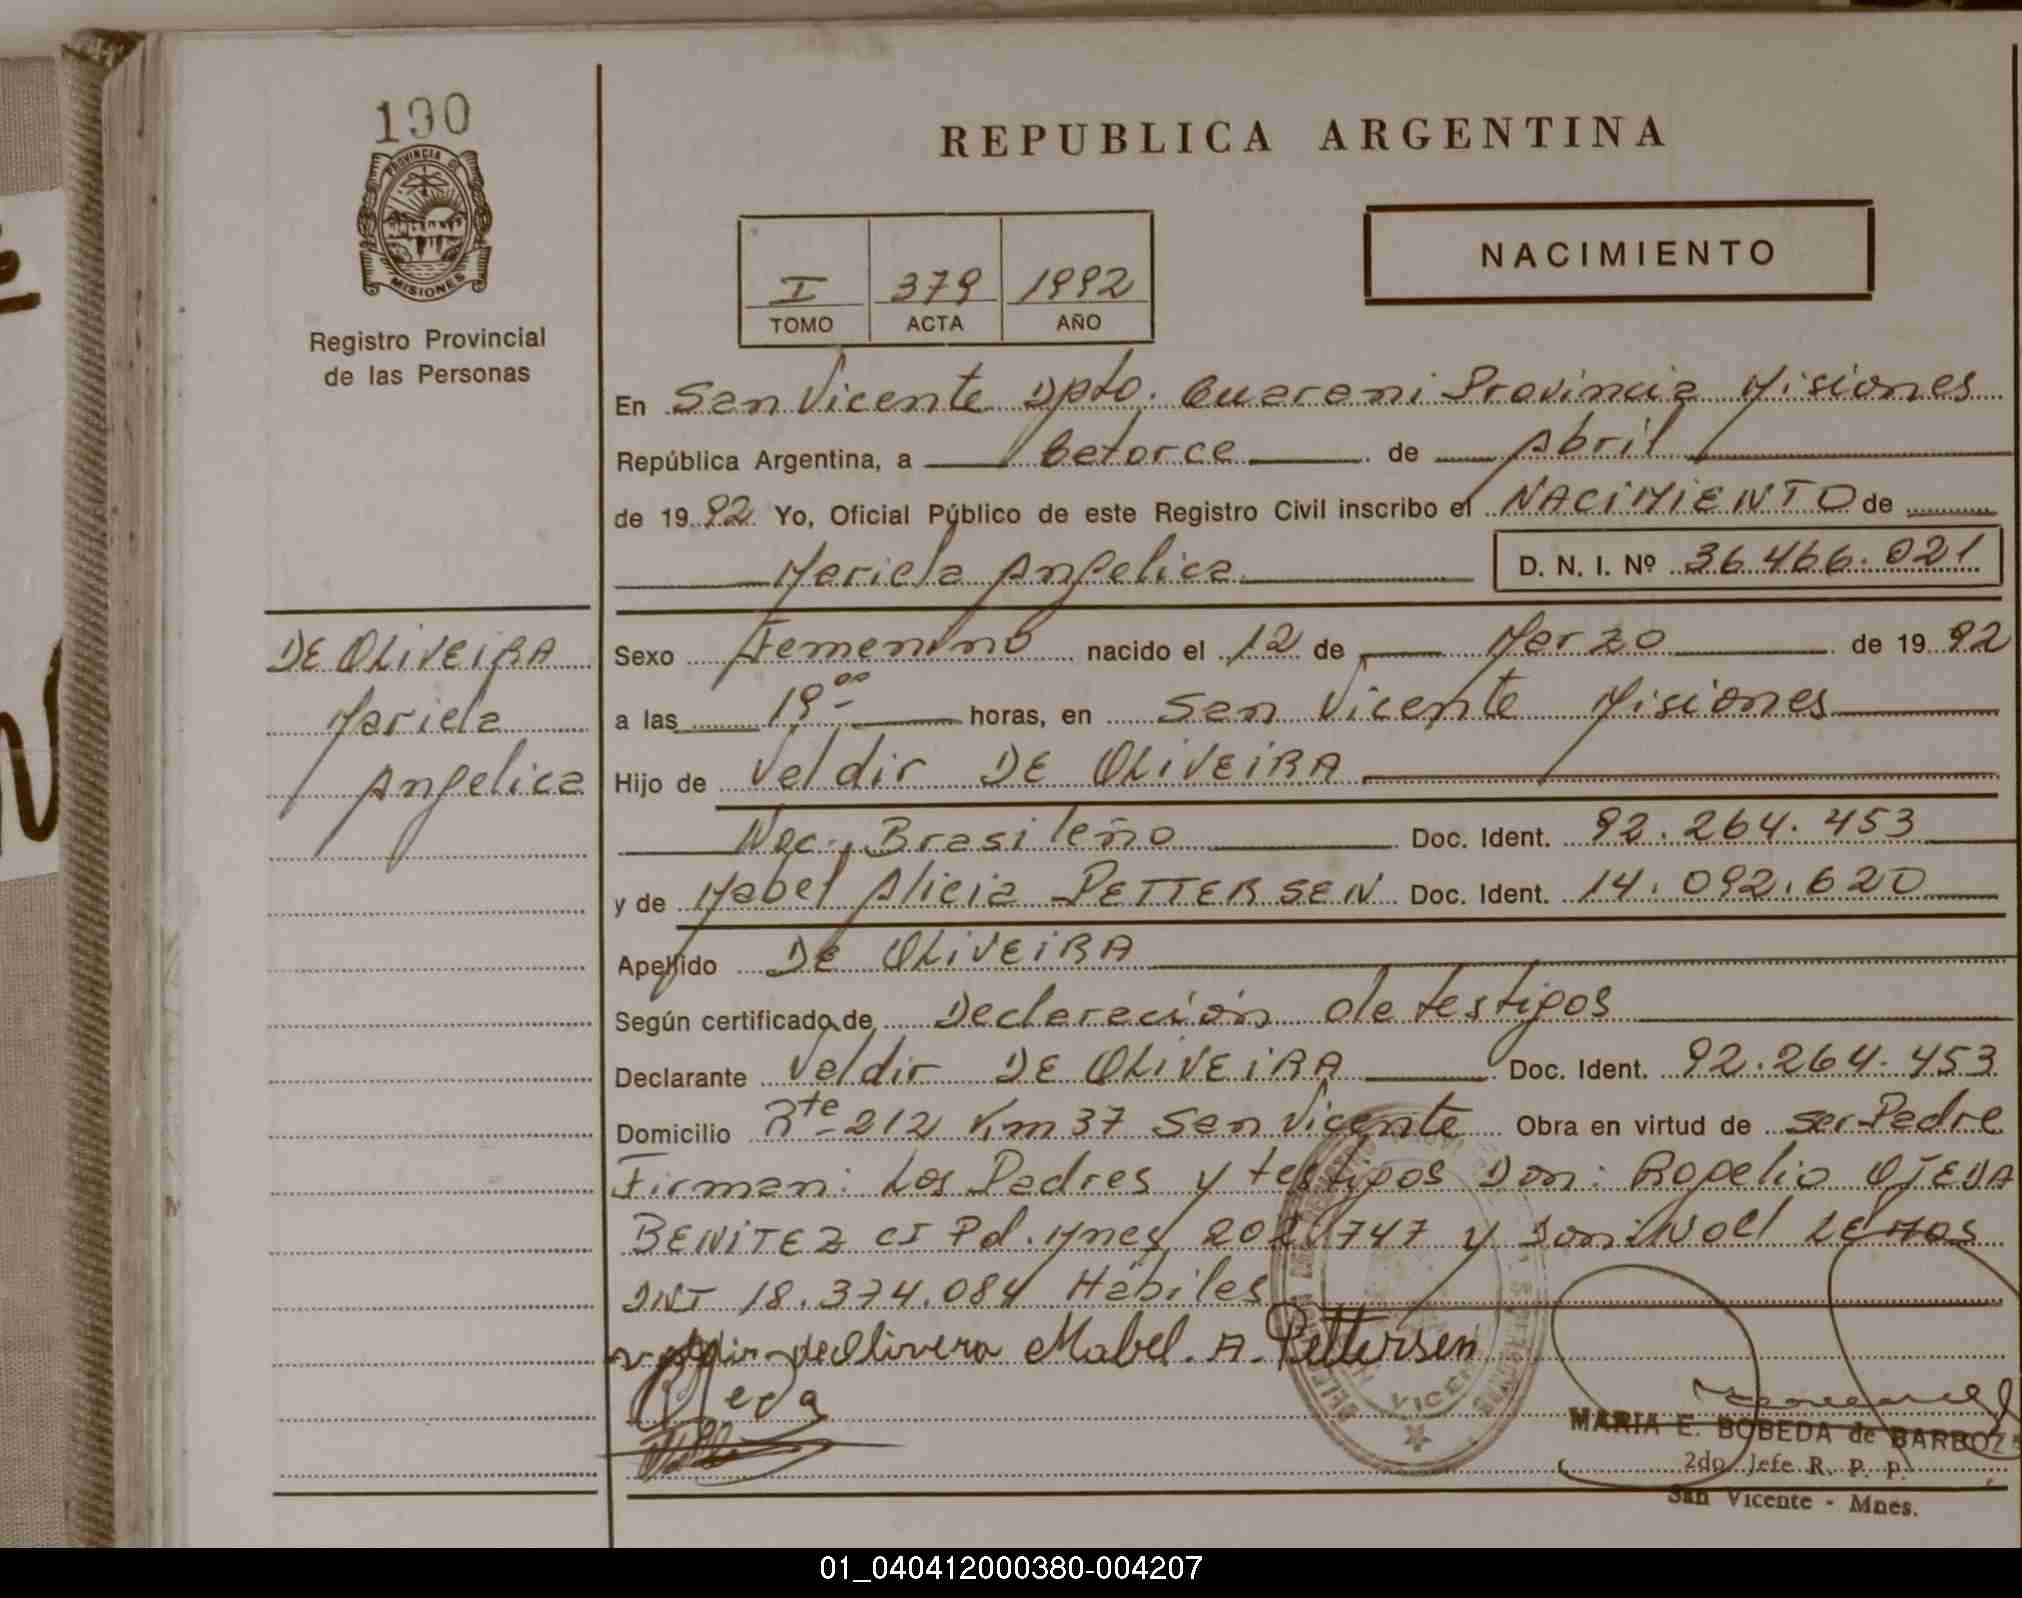 190
PROVINCIA DE
MISIONES
Registro Provincial
de las Personas
REPUBLICA ARGENTINA
NACIMIENTO
I 379 1992
TOMO ACTA AÑO
En San Vicente Dpto. Guarani Provincia Misiones
República Argentina, a catorce de Abril
de 1992 Yo, Oficial Público de este Registro Civil inscribo el NACIMIENTO de
Mariela Angelica D. N. I. Nº 36.466.021
DE OLIVEIRA
Mariela
Angelica
Sexo Femenino nacido el 12 de Marzo de 1992
a las 19 00 horas, en San Vicente Misiones
Hijo de Valdir DE OLIVEIRA
Nac. Brasileño Doc. Ident. 92.264.453
y de Mabel Alicia PETTERSEN Doc. Ident. 14.092.620
Apellido DE OLIVEIRA
Según certificado de Declaración de testigos
Declarante Valdir DE OLIVEIRA Doc. Ident. 92.264.453
Domicilio Rte 212 Km 37 San Vicente Obra en virtud de ser Padre
Firman: Los Padres y testigos Don: Rogelio OJEDA
BENITEZ CI Pol. Mnes 747 y
DNI 18.374.084 Hábiles
de Olivera Mabel. A. Pettersen
Ojeda
MARIA E. BOBEDA de BARBOZA
2do. Jefe R. P. P.
San Vicente - Mnes.
01_040412000380-004207